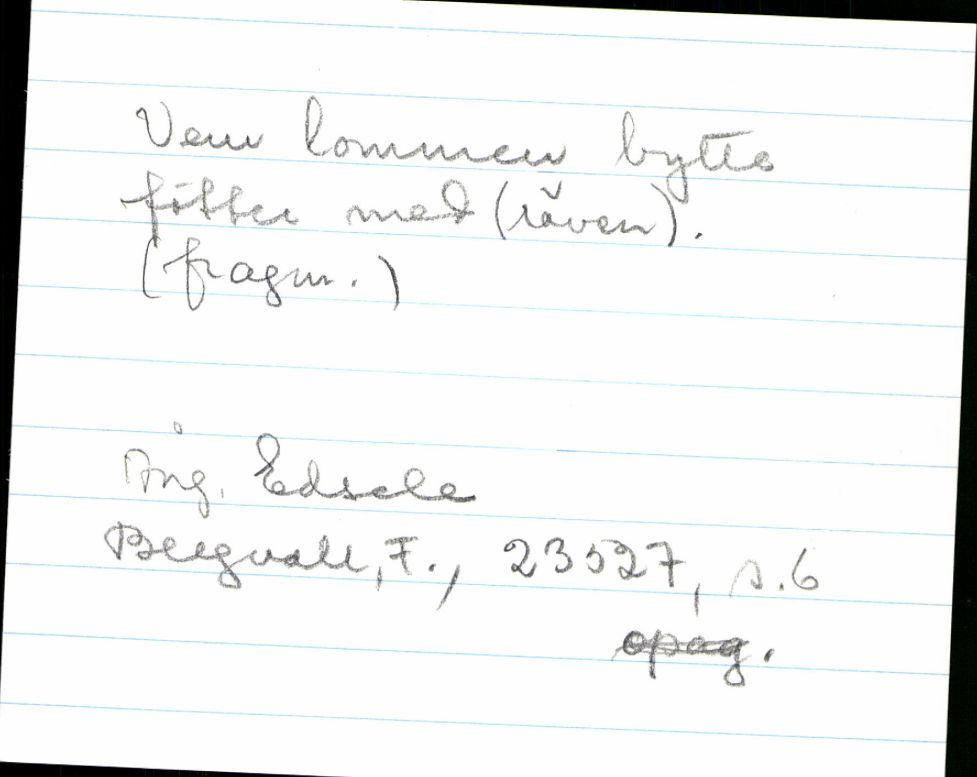 Vem lommen bytte
fötter med (räven).
(fragm.)
Ång. Edsele
Bergvall, F., 23527, s.6
opag.